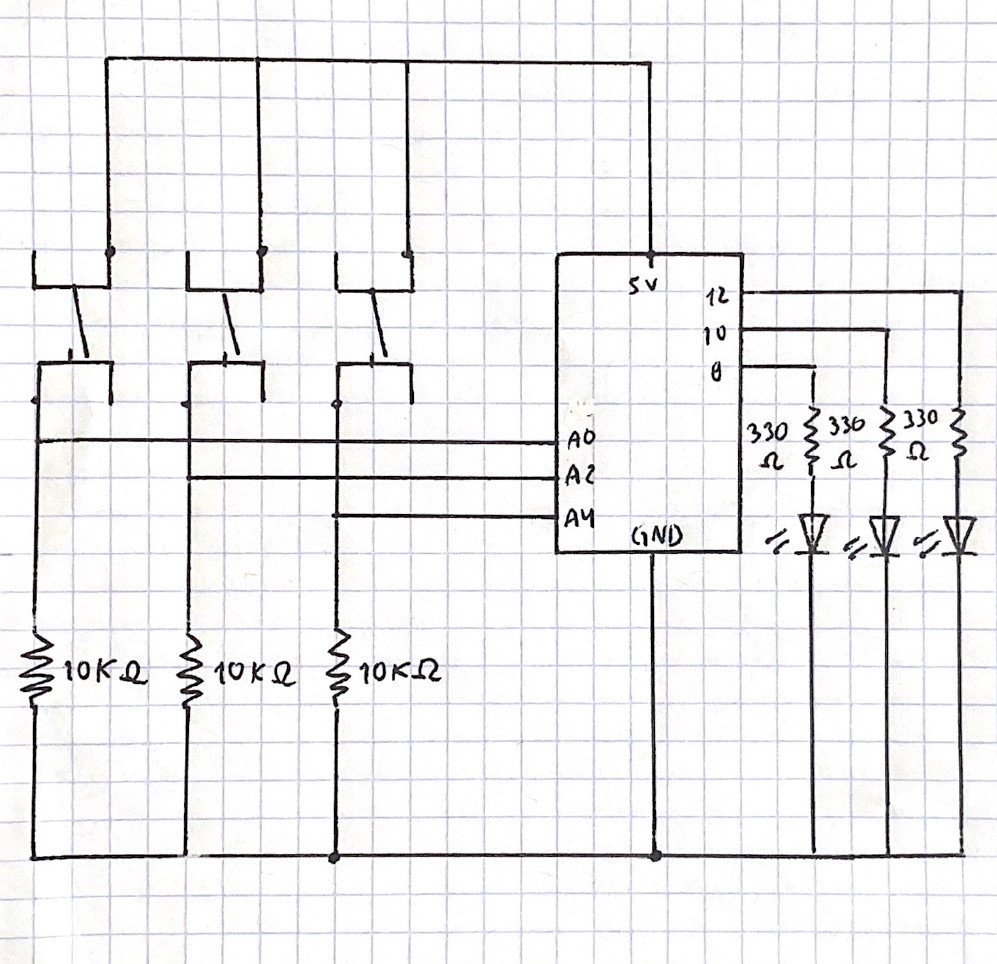 5V
12
10
8
A0
A2
A4
GND
330
Ω
330
Ω
330
Ω
10KΩ
10KΩ
10KΩ